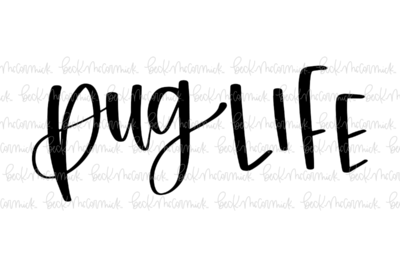 pug LIFE